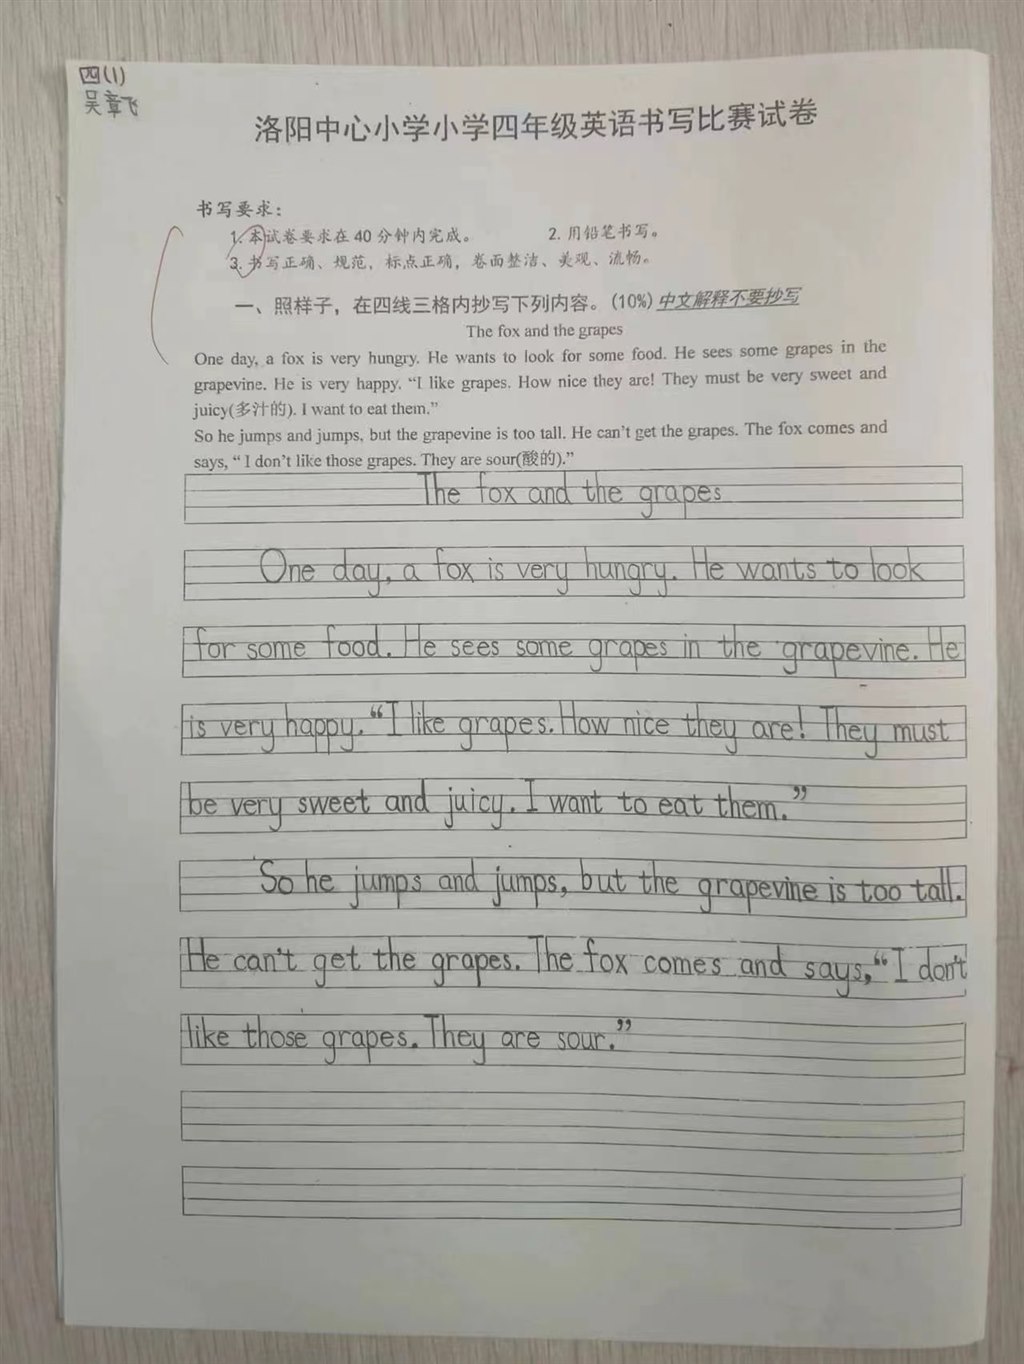 四(1)
吴章飞
洛阳中心小学小学四年级英语书写比赛试卷
书写要求：
1. 本试卷要求在 40 分钟内完成。 2. 用铅笔书写。
3. 书写正确、规范，标点正确，卷面整洁、美观、流畅。
一、照样子，在四线三格内抄写下列内容。(10%) 中文解释不要抄写
The fox and the grapes
One day, a fox is very hungry. He wants to look for some food. He sees some grapes in the
grapevine. He is very happy. “I like grapes. How nice they are! They must be very sweet and
juicy(多汁的). I want to eat them.”
So he jumps and jumps, but the grapevine is too tall. He can’t get the grapes. The fox comes and
says, “ I don’t like those grapes. They are sour(酸的).”
The fox and the grapes
One day, a fox is very hungry. He wants to look
for some food. He sees some grapes in the grapevine. He
is very happy. “I like grapes. How nice they are! They must
be very sweet and juicy. I want to eat them.”
So he jumps and jumps, but the grapevine is too tall.
He can't get the grapes. The fox comes and says, “I don't
like those grapes. They are sour.”